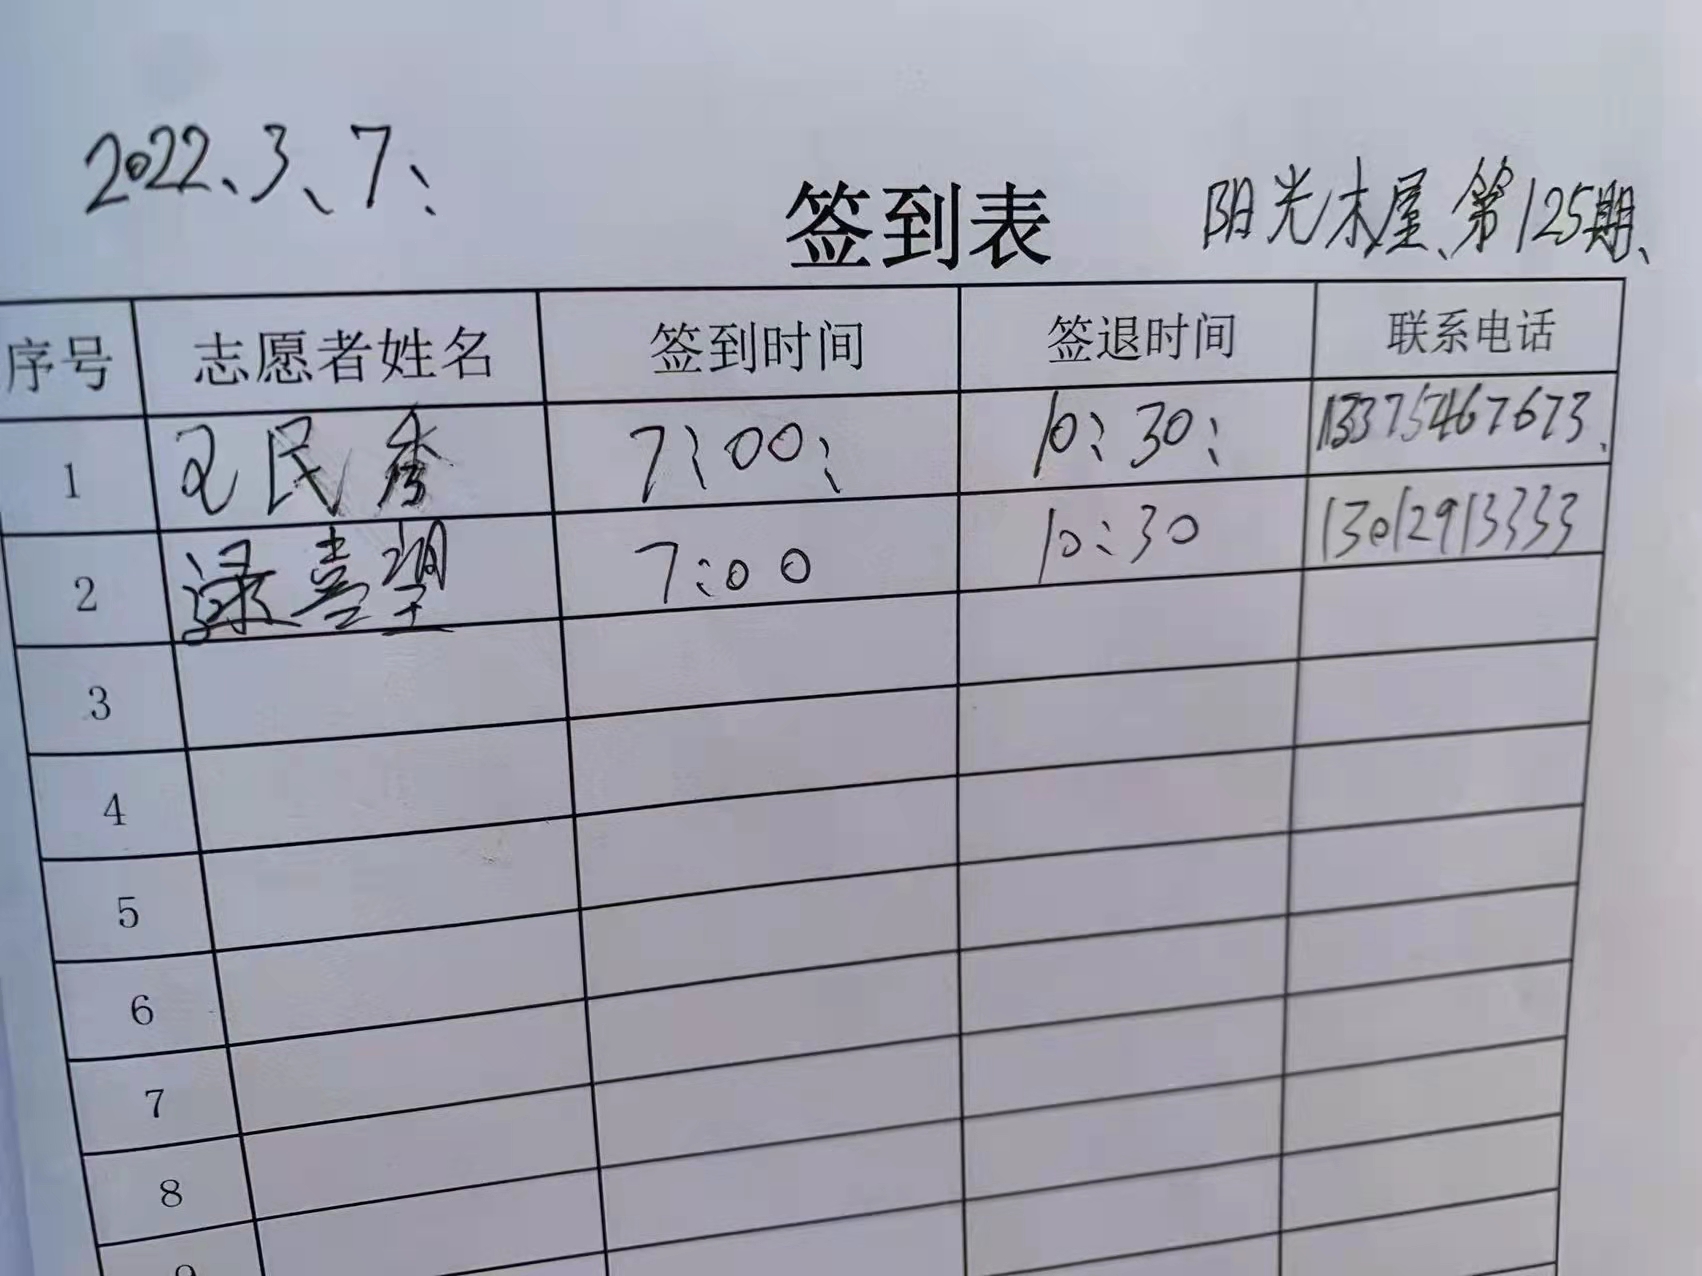 2022、3、7、
签到表
阳光木屋、第125期、
序号 志愿者姓名 签到时间 签退时间 联系电话
1 民秀 7:00: 10:30: 13375467673、
2 喜望 7:00 10:30 13012913333
3
4
5
6
7
8